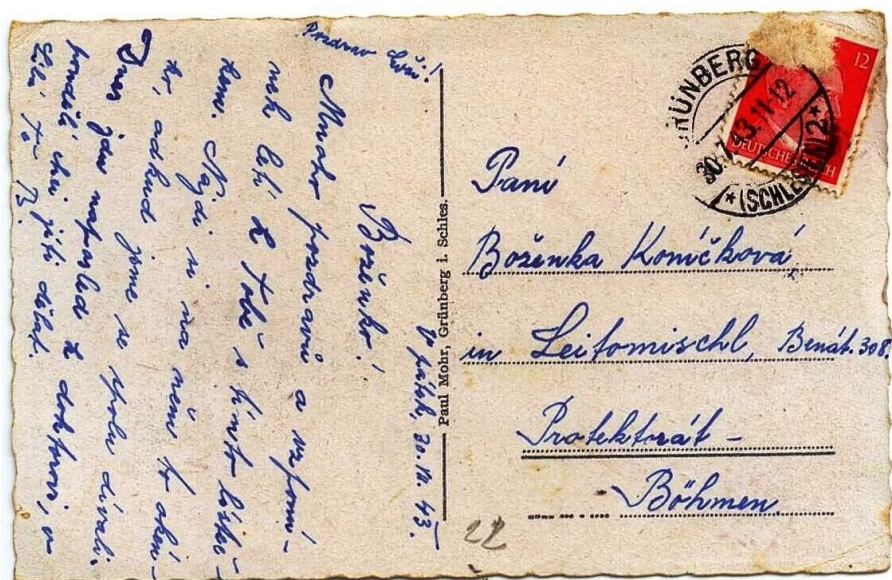 Pozdrav
V pátek, 30. VII. 43.
Boženko!
Mnoho pozdravů a vzpomí-
nek letí k Tobě s tímto lísteč-
kem. Najdi si na něm to okén-
ko, odkud jsme se spolu dívali.
Dnes jdu naposled k doktorovi, v
pondělí chci jíti dělat.
Paul Mohr, Grünberg i. Schles.
GRÜNBERG
30.7.43.11-12
*(SCHLESIEN)2*
12
DEUTSCHES REICH
Paní
Boženka Koníčková
in Leitomischl, Benát. 308
Protektorát -
Böhmen.
22